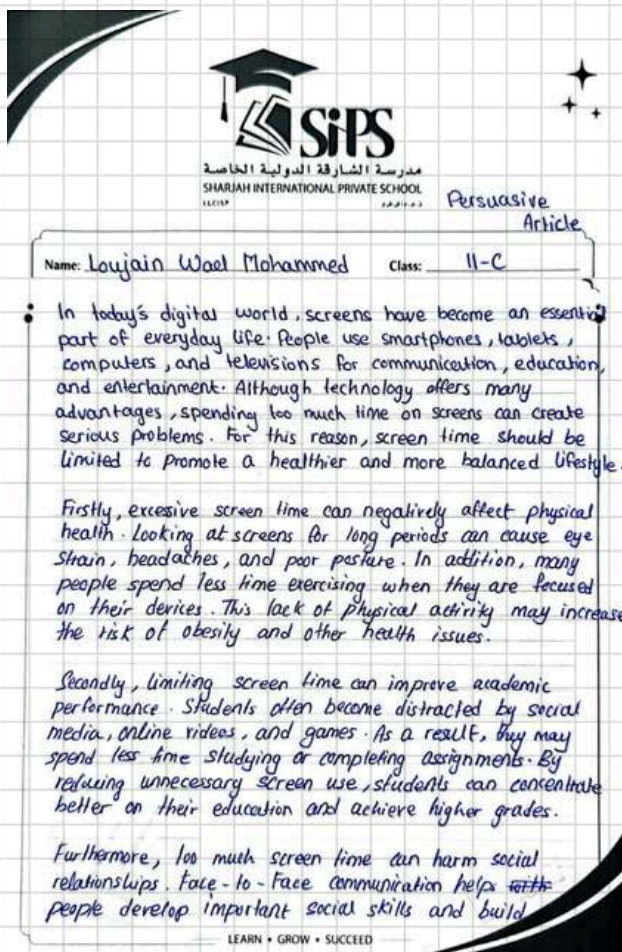 SiPS
مدرسة الشارقة الدولية الخاصة
SHARJAH INTERNATIONAL PRIVATE SCHOOL
Persuasive
Article
Name: Loujain Wael Mohammed Class: 11-C
In today's digital world, screens have become an essential
part of everyday life. People use smartphones, tablets,
computers, and televisions for communication, education,
and entertainment. Although technology offers many
advantages, spending too much time on screens can create
serious problems. For this reason, screen time should be
limited to promote a healthier and more balanced lifestyle.
Firstly, excessive screen time can negatively affect physical
health. Looking at screens for long periods can cause eye
strain, headaches, and poor posture. In addition, many
people spend less time exercising when they are focused
on their devices. This lack of physical activity may increase
the risk of obesity and other health issues.
Secondly, limiting screen time can improve academic
performance. Students often become distracted by social
media, online videos, and games. As a result, they may
spend less time studying or completing assignments. By
reducing unnecessary screen use, students can concentrate
better on their education and achieve higher grades.
Furthermore, too much screen time can harm social
relationships. Face-to-Face communication helps
people develop important social skills and build
LEARN • GROW • SUCCEED